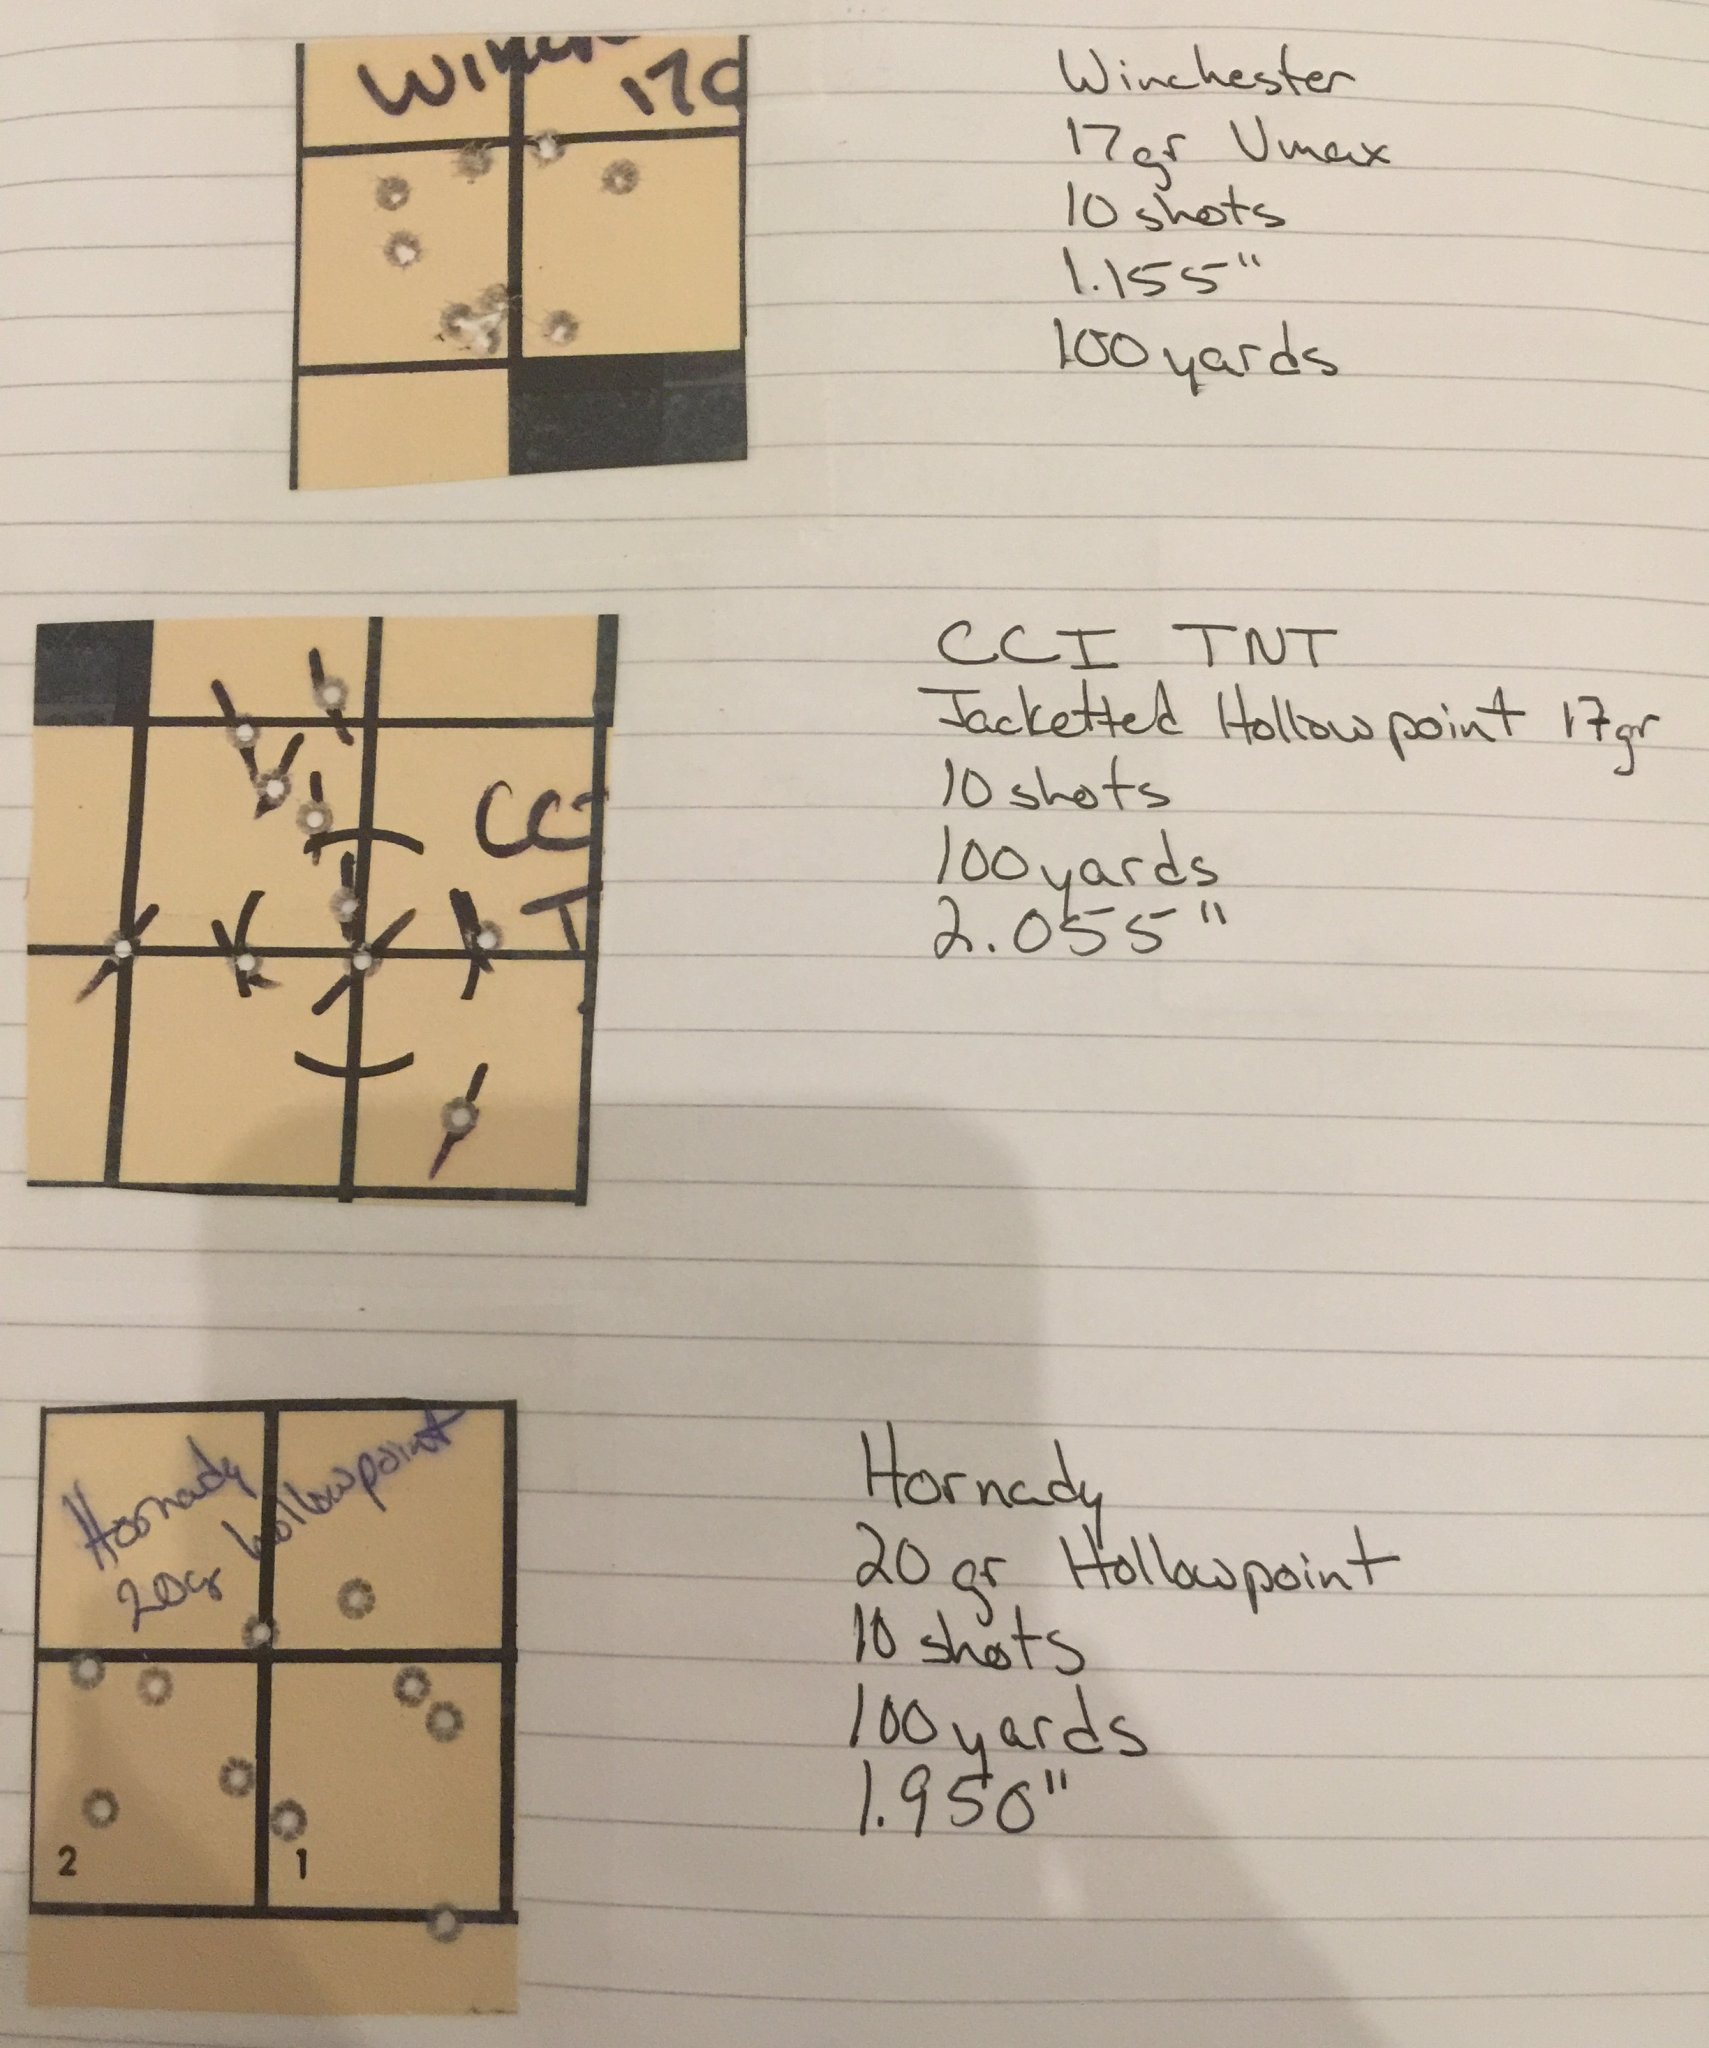 17
Winchester
17gr Vmax
10 shots
1.155"
100 yards
CCI TNT
Jacketted Hollowpoint 17gr
10 shots
100 yards
2.055"
CCI
T
Hornady
20gr hollowpoint
2
1
Hornady
20 gr Hollowpoint
10 shots
100 yards
1.950"